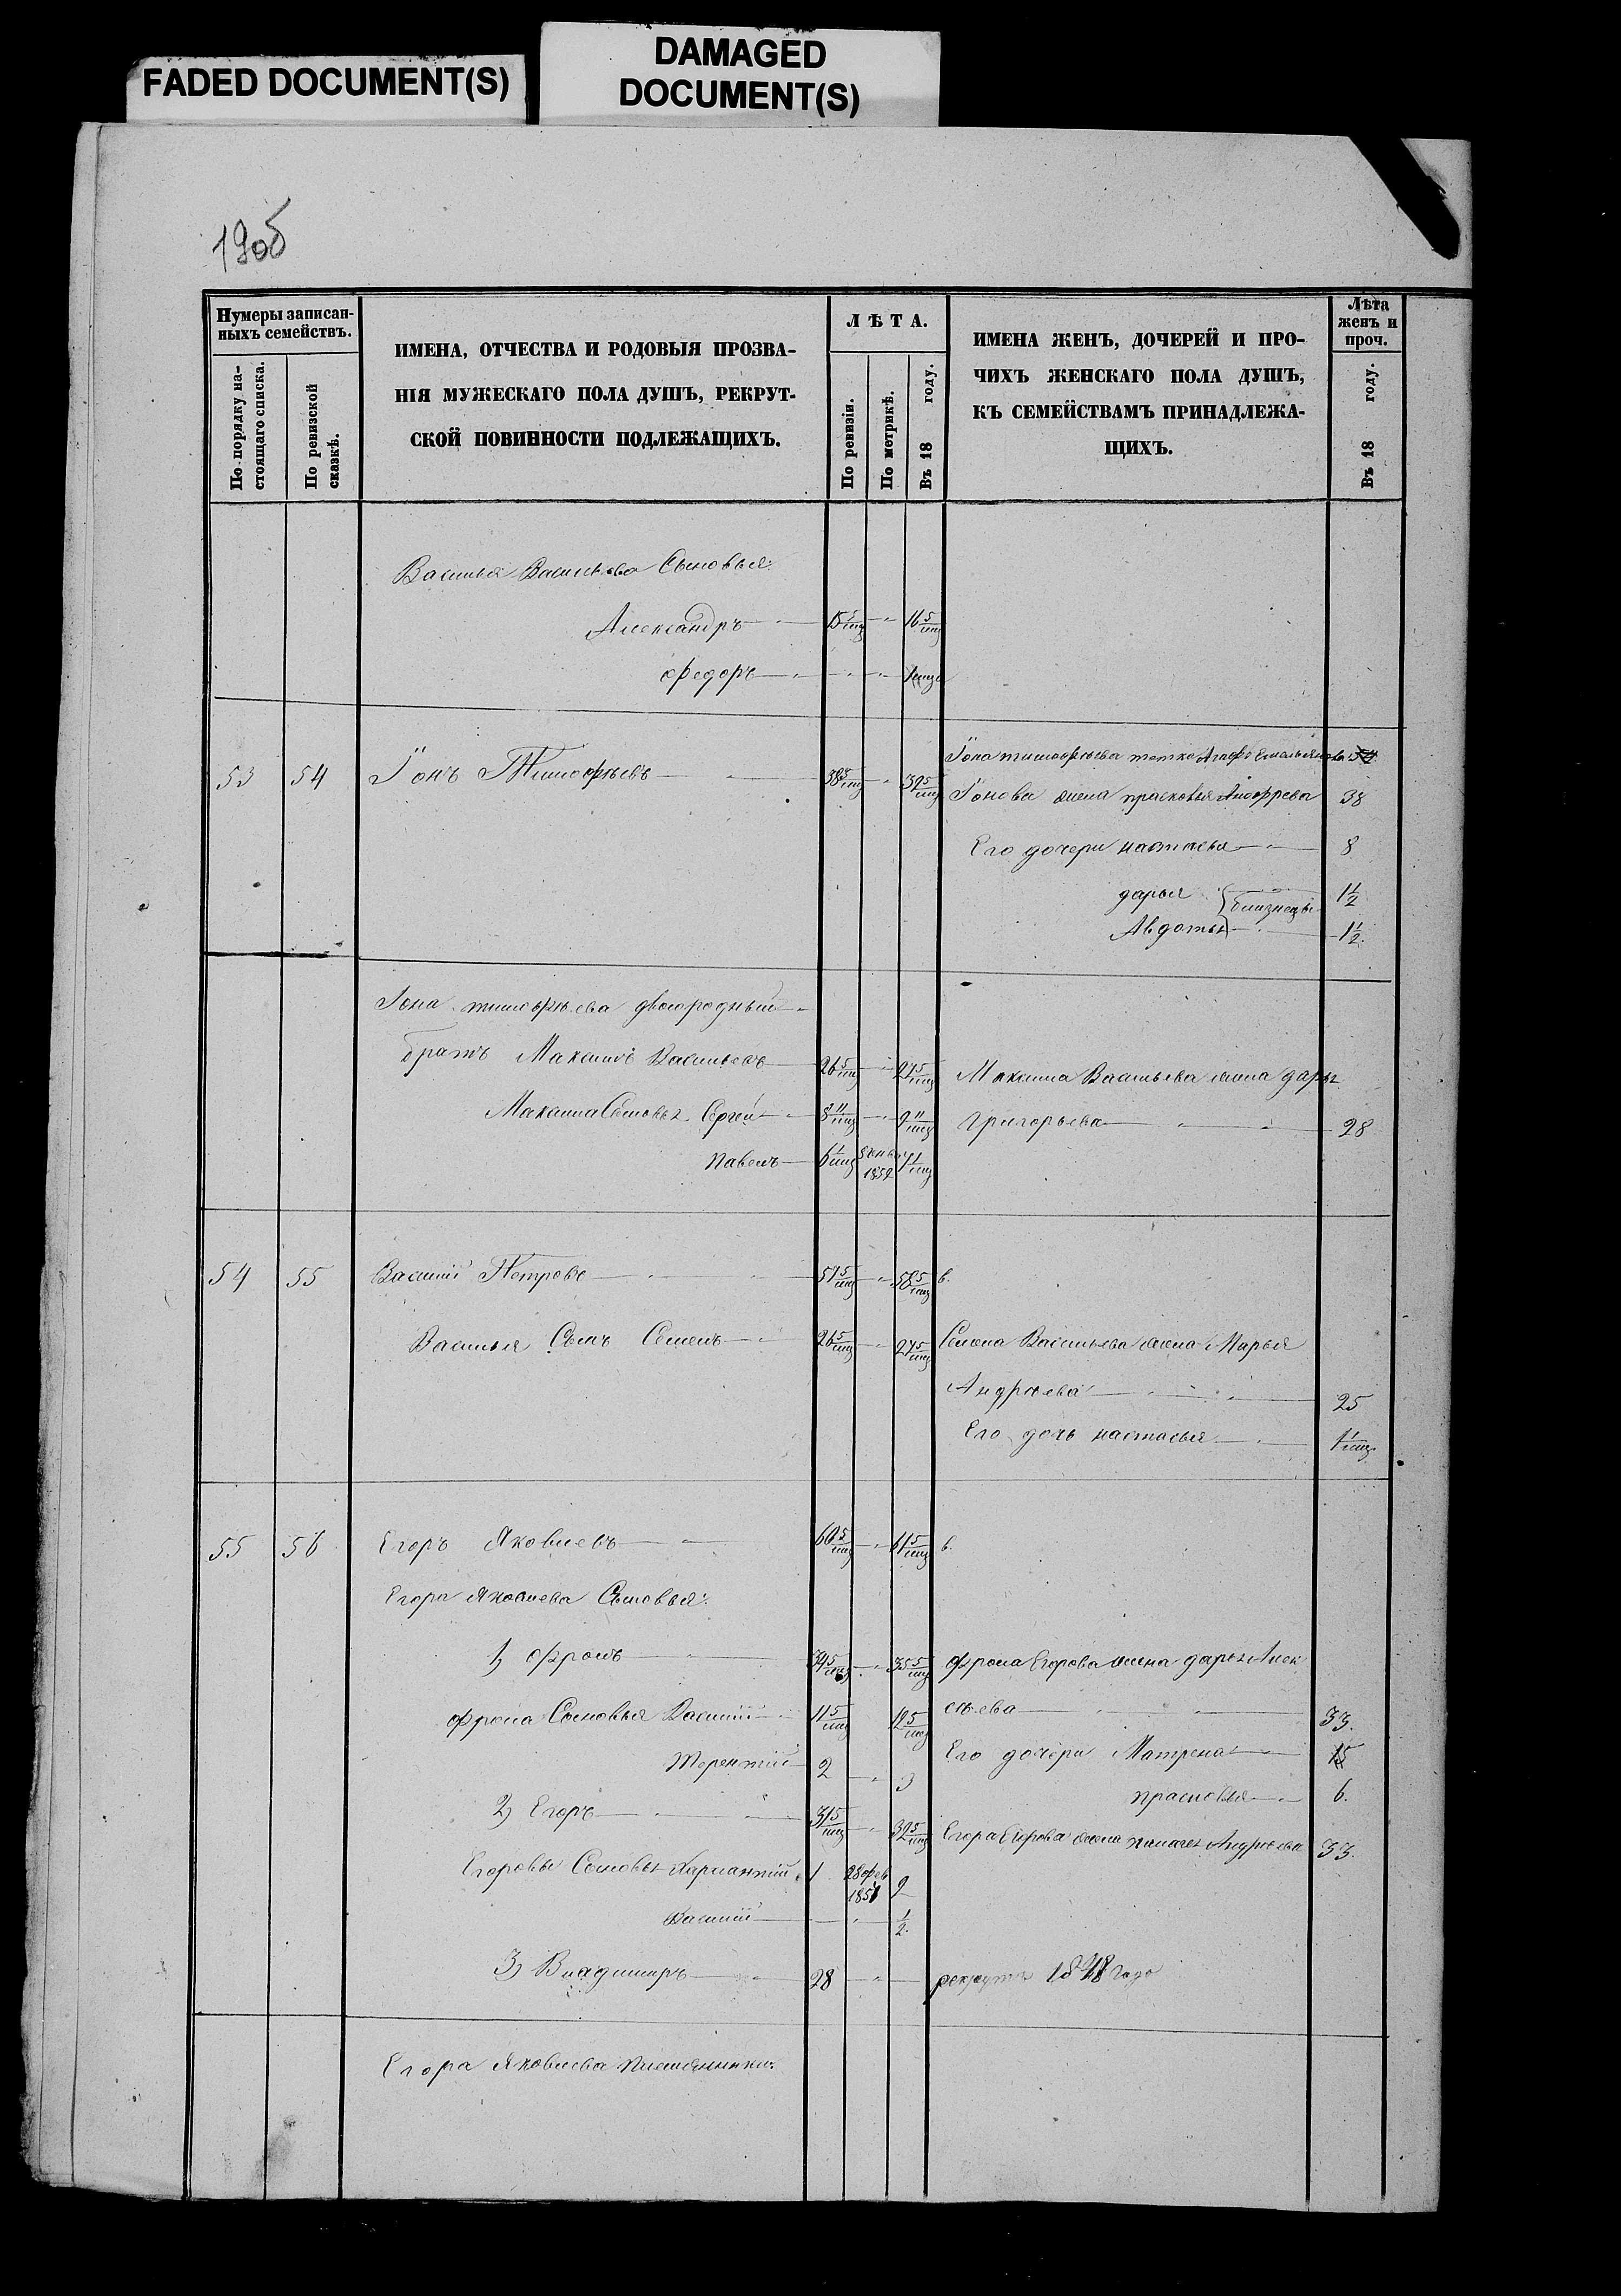 FADED DOCUMENT(S)
DAMAGED
DOCUMENT(S)
190б
Нумеры записан-
ныхъ семействъ.
По порядку на-
стоящаго списка.
По ревизской
сказкѣ.
ИМЕНА, ОТЧЕСТВА И РОДОВЫЯ ПРОЗВА-
НІЯ МУЖЕСКАГО ПОЛА ДУШЪ, РЕКРУТ-
СКОЙ ПОВИННОСТИ ПОДЛЕЖАЩИХЪ.
ЛѢТА.
По ревизіи.
По метрикѣ.
Въ 18 году.
ИМЕНА ЖЕНЪ, ДОЧЕРЕЙ И ПРО-
ЧИХЪ ЖЕНСКАГО ПОЛА ДУШЪ,
КЪ СЕМЕЙСТВАМЪ ПРИНАДЛЕЖА-
ЩИХЪ.
Лѣта
женъ и
проч.
Въ 18 году.
Василья Васильева Сыновья:
Александръ 15 5/мц 16 5/мц
Федоръ
Іона тимофѣева тетка Емельянова
53 54 Іонъ Тимофѣевъ 38 5/мц 39 5/мц Іонова жена прасковья 38
Его дочери настасья 8
дарья близнецы 1 1/2
Авдотья 1 1/2
Іона тимофѣева двоюродный
братъ Максимъ Васильевъ 26 5/мц 27 5/мц Максима Васильева жена дарья
Максима Сыновья Сергей 8 11/мц 9 11/мц Григорьева 28
павелъ 6 1/мц 7 1/мц
54 55 Василій Петровъ 57 5/мц 58 5/мц в.
Василья Сынъ Семенъ 26 5/мц 27 5/мц Семена Васильева жена Марья
Андрѣева 25
Его дочь настасья 1 1/мц.
55 56 Егоръ Яковлевъ 60 5/мц 61 5/мц в.
Егора Яковлева Сыновья:
1) фролъ 34 5/мц 35 5/мц фрола Егорова жена дарья Алек
фрола Сыновья Василій 11 5/мц 12 5/мц сѣева 33.
Терентій 2 3 Его дочери Матрена 15
прасковья 6.
2) Егоръ 31 5/мц 32 5/мц Егора Егорова жена Андрѣева 33.
Егоровы Сыновья 1 28 фев 1857 2
Василій 1/2.
3) Владимиръ 28 рекрутъ года
Егора Яковлева племянники: